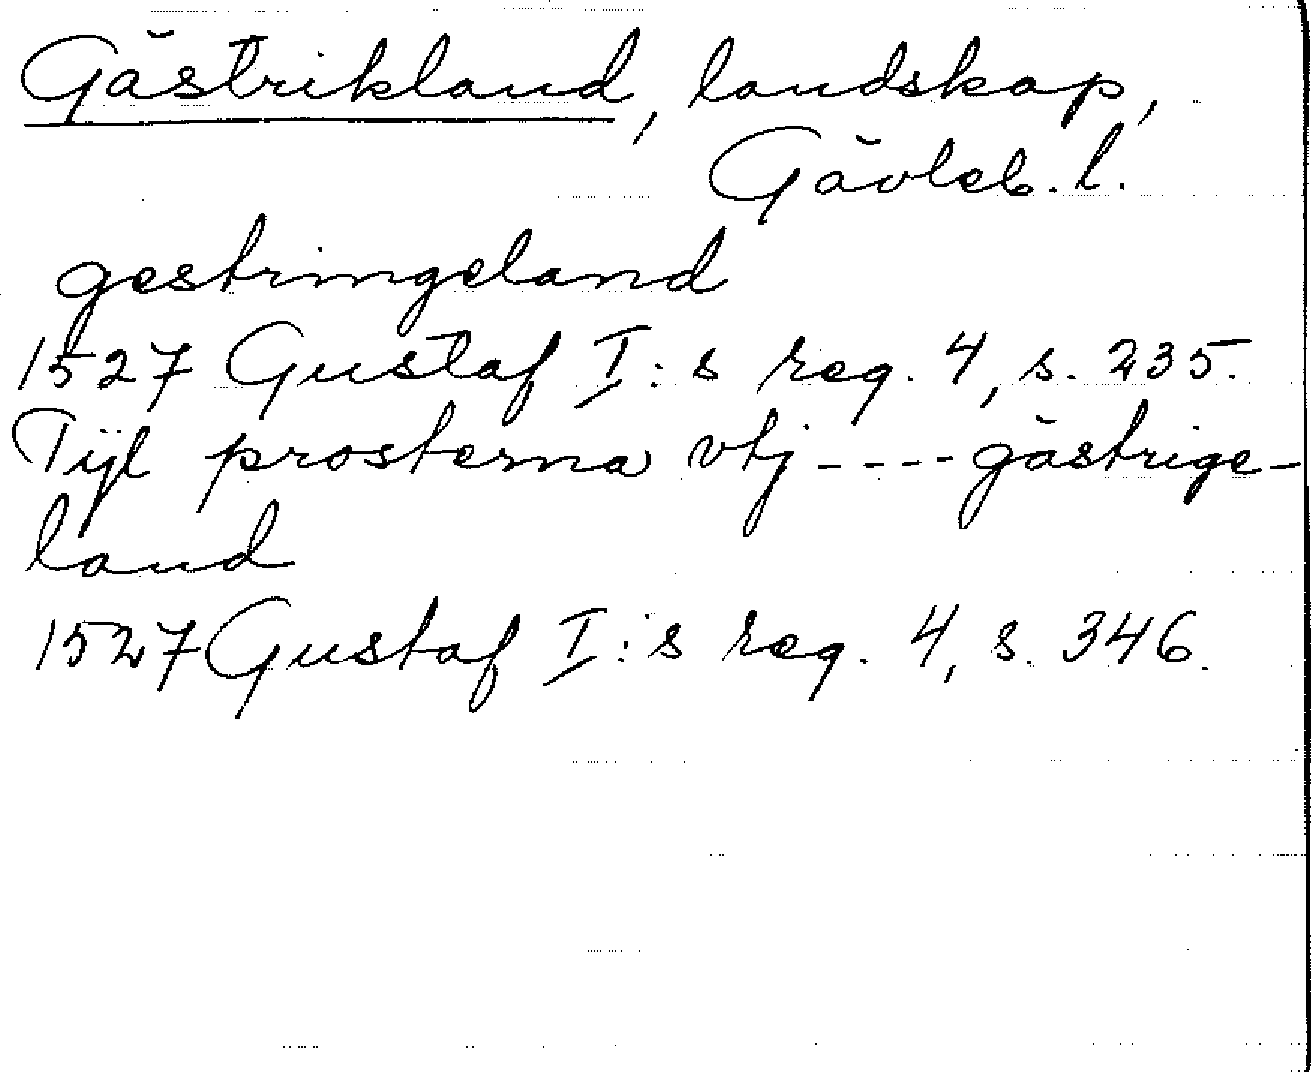 Gästrikland, landskap,
Gävleb. l.
gestringeland
1527 Gustaf I:s reg. 4, s. 235.
Tijl prosterna vtj ---- gästrige-
land
1527 Gustaf I:s reg. 4, s. 346.